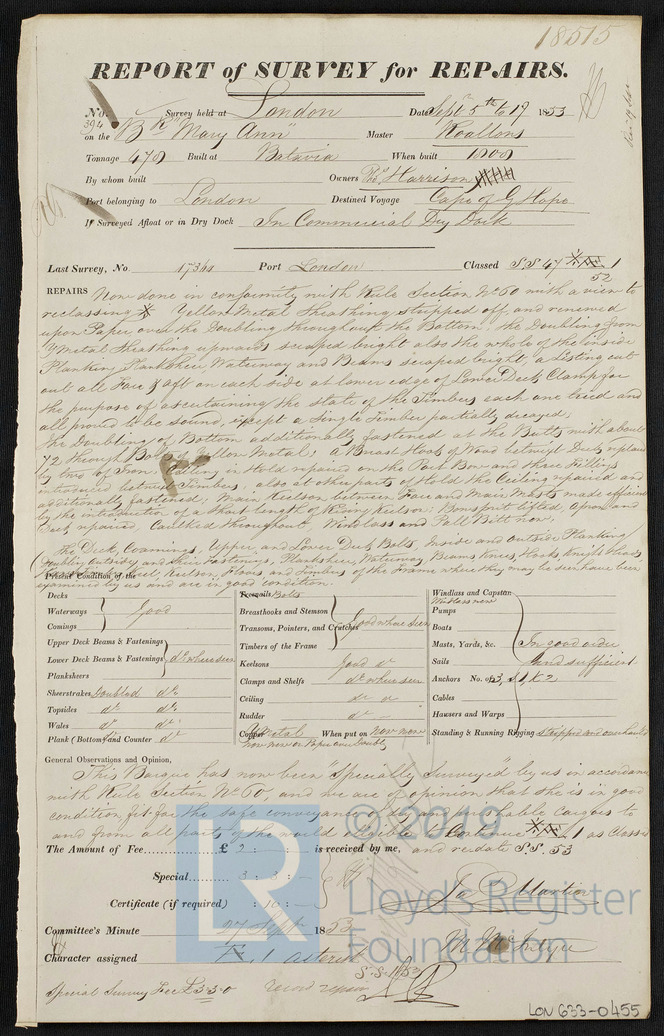 18515
REPORT of SURVEY for REPAIRS.
No. 394 Survey held at London Date Sept 5th to 19 1853
on the Bk "Mary Ann" Master
Tonnage 478 Built at Batavia When built 1808
By whom built Owners Thos Harrison
Port belonging to London Destined Voyage Cape of G Hope
If Surveyed Afloat or in Dry Dock In Commercial Dry Dock
Last Survey, No. Port London Classed S.S 47 1
52
REPAIRS Now done in conformity with Rule Section No 60 with a view to
reclassing Yellow Metal Sheathing stripped off, and renewed
upon Paper, over the Doubling throughout the Bottom, the Doubling from
Y Metal Sheathing upwards scraped bright also the whole of the inside
Planking, Planksheer, Waterway and Beams scraped bright, a Listing cut
out all Fore & Aft on each side at lower edge of Lower Deck Clamp for
the purpose of ascertaining the state of the Timbers each one tried and
all proved to be sound, except a Single Timber partially decayed;
the Doubling of Bottom additionally fastened at the Butts with about
72 through Bolts of Yellow Metal; a Breast Hook of Wood betwixt Decks replaced
by two of Iron, Ceiling in Hold repaired on the Port Bow and three Fillings
introduced between Timbers, also at other parts of Hold the Ceiling repaired and
additionally fastened; Main Keelson between Fore and Main Masts made efficient
by the introduction of a short length of Rising Keelson; Bowsprit lifted, Apron and
repaired, Caulked throughout, Windlass and Pall Bitt new,
The Deck, Coamings, Upper and Lower Deck Bolts, Inside and Outside Planking
(Doubling Outside) and their Fastenings, Planksheer, Waterway, Beams, Knees, Hooks, Knight heads
Keelson, of the Frame where they may be seen have been
examined by us and are in good condition.
Present Condition of the
Decks
Waterways Good
Comings
Upper Deck Beams & Fastenings
Lower Deck Beams & Fastenings do where seen
Planksheers
Sheerstrakes Doubled do
Topsides do do
Wales do do
Plank (Bottom) and Counter do
Treenails Bolts
Breasthooks and Stemson
Transoms, Pointers, and Crutches Good where seen
Timbers of the Frame
Keelsons Good do
Clamps and Shelfs do where seen
Ceiling do do
Rudder do
Copper Y Metal When put on now new
now new on Paper over Doubling
Windlass and Capstan
Windlass new
Pumps
Boats
Masts, Yards, &c. In good order
Sails and sufficient
Anchors No. of 3, 1, & 2
Cables
Hausers and Warps
Standing & Running Rigging stripped and overhauled
General Observations and Opinion,
This Barque has now been "Specially Surveyed" by us in accordance
with Rule Section No 60, and we are of opinion that she is in good
condition, fit for the safe conveyance of dry and perishable cargoes to
and from all parts of the world Continue 1 as Classed
The Amount of Fee £ 2 : is received by me, and re-date S.S. 53
Special 3 : 3 : -
Certificate (if required) : 10 : -
Committee's Minute 27 Sept 1853
Character assigned 1 asterisk
S.S. 53
Special Survey Fee £3.3.0 record repairs
© 2019
Lloyd's Register
Foundation
LON 633-0455